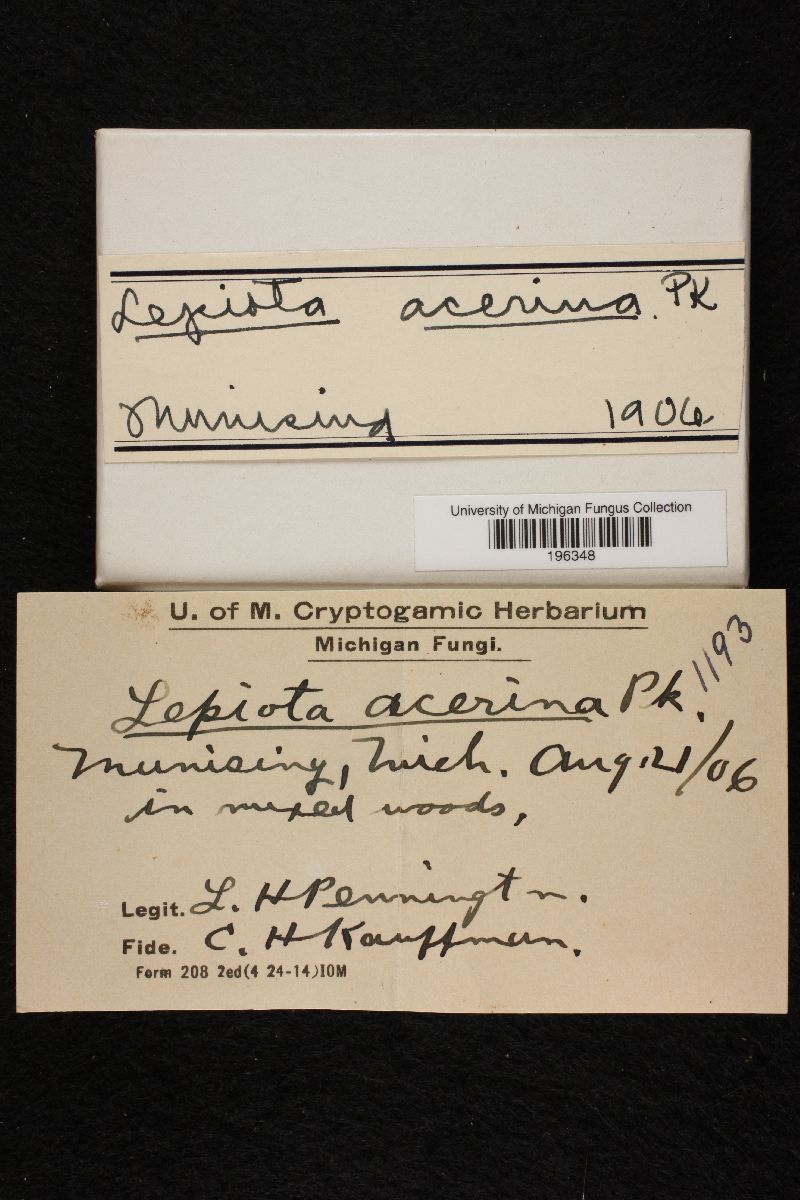 Lepiota acerina. PK
Munising 1906
University of Michigan Fungus Collection
196348
U. of M. Cryptogamic Herbarium
Michigan Fungi.
1193
Lepiota acerina Pk.
Munising, Mich. Aug. 21/06
in mixed woods,
Legit. L. H Pennington.
Fide. C. H Kauffman.
Form 208 2ed(4 24-14)10M